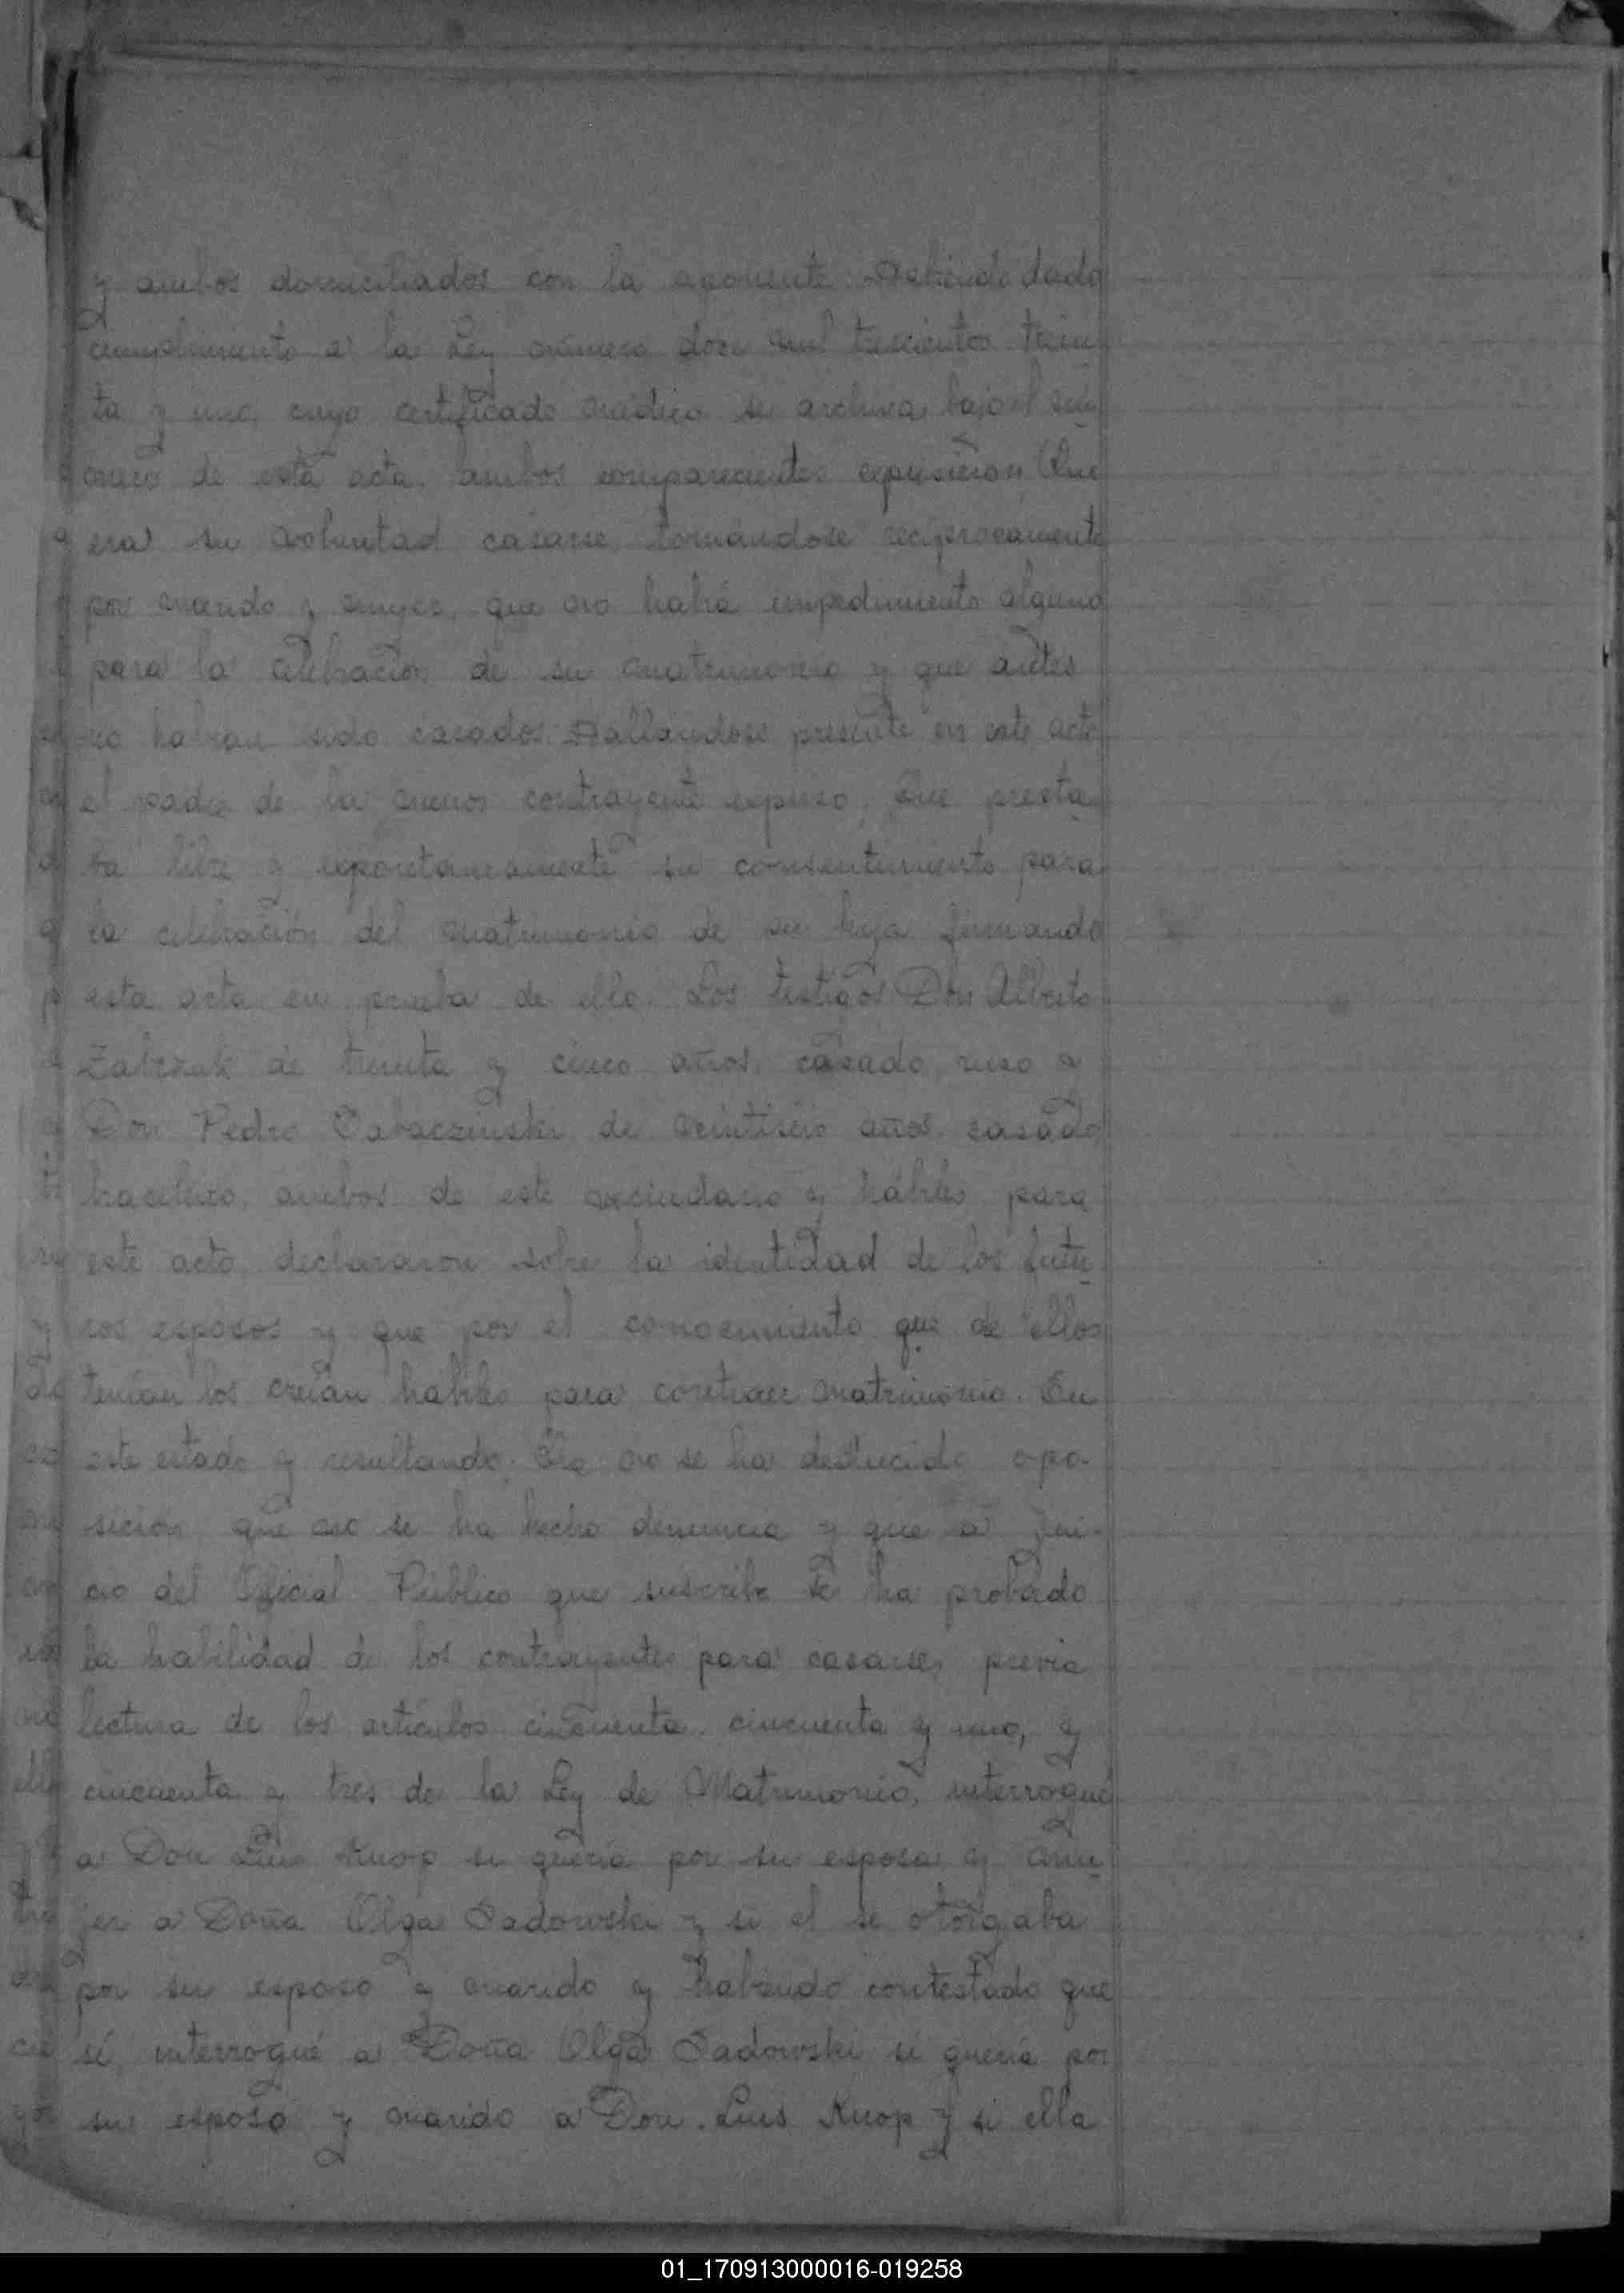 y ambos domiciliados con la exponente. Habiendo dado
cumplimiento a la Ley número doce mil trescientos trein
ta y uno, cuyo certificado médico se archiva bajo el nú
mero de esta acta. ambos comparecientes expusieron: Que
era su voluntad casarse, tomándose reciprocamente
por marido y mujer, que no había impedimento alguno
para la celebración de su matrimonio y que antes
no habian sido casados. Hallándose presente en este acto
el padre de la menor contrayente expuso: Que presta
ba libre y expontaneamente su consentimiento para
la celebración del matrimonio de su hija firmando
esta acta en prueba de ello. Los testigos Don Alberto
de treinta y cinco años, casado, ruso y
Don Pedro de veintiseis años, casado
brasilero, ambos de este vecindario y hábiles para
este acto, declararon sobre la identidad de los futu
ros esposos y que por el conocimiento que de ellos
tenian los creian hábiles para contraer matrimonio. En
este estado y resultando: Que no se ha deducido opo-
sicion, que no se ha hecho denuncia y que a jui-
cio del Oficial Público que suscribe se ha probado
la habilidad de los contrayentes para casarse, previa
lectura de los artículos cincuenta, cincuenta y uno, y
cincuenta y tres de la Ley de Matrimonio, interrogué
a Don Luis Knop si queria por su esposa y mu
jer a Doña Olga Sadowski y si el se otorgaba
por su esposo y marido y habiendo contestado que
sí, interrogué a Doña Olga Sadowski si queria por
su esposo y marido a Don Luis Knop y si ella
01_170913000016-019258